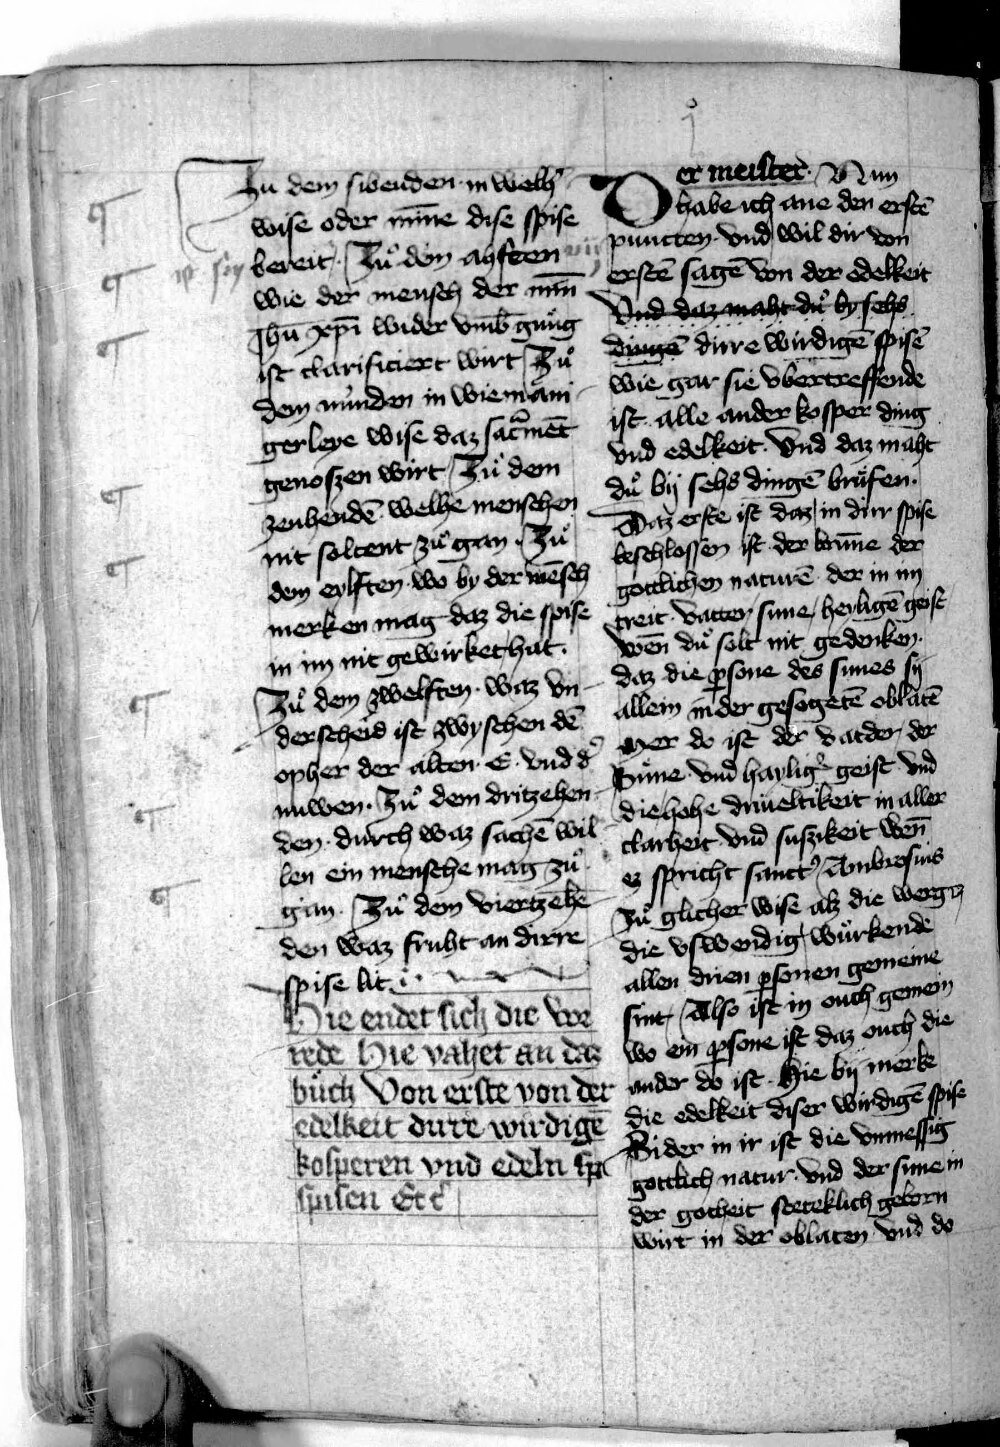 Zu dem sibenden in welh᷎
wise oder minne dise spise
bereit. Zuͦ dem ahsteen
wie der mensch der minn
Jhu xpi wider vmb gnuͦg
ist clarificiert wirt Zuͦ
dem nuͤnden in wie mani
gerleye wise daz sacͣment
genoszen wirt Zuͦ dem
zenhendē welhe menschen
nit soltent zuͦ gan. Zuͦ
dem eylften wo by der mēsch
merken mag daz die spise
in im nit gewirket hat.
Zuͦ dem zwelften waz vn
derscheid ist zwyschen dē
opher der alten E vnd d᷎
nuwen. Zuͦ dem dritzehen
den durch waz sachē wil
len ein mensche mag zuͦ
gan. Zuͦ dem viertzehē
den waz fruht an dirre
spise lit
Hie endet sich die vor
rede Hie vahet an daz
buͦch Von erste von der
edelkeit dirre wirdigē
kosperen vnd edeln spi
spisen Etc
Der meister. Nun
habe ich ane den erstē
puncten vnd wil dir von
erstē sagē von der edelkeit
Vnd daz maht duͦ by sehs
dingē dirre wirdigē spisē
wie gar sie vbertreffende
ist alle ander kosper ding
vnd edelkeit. Vnd daz maht
duͦ bij sehs dingē bruͤfen.
Daz erste ist daz in dirr spise
beschlossen ist der brūne der
gottlichen naturē der in im
treit vatter sune heyligē geist
wen duͦ solt nit gedenken.
daz die ꝑsone des sunes sy
allein in der gesegetē oblatē
Mer do ist der vatder der
Sune vnd haylig᷎ geist vnd
die hohe driueltikeit in aller
clarheit vnd suszikeit wen̄
ez spricht sanct᷎ Ambrosius
Zuͦ glicher wise alz die werg
die vswendig wuͤrkende
allen drien ꝑsonen gemeine
sint Also ist in ouch gemein
wo ein ꝑsone ist daz ouch die
ander do ist. Hie bij merke
die edelkeit diser wirdigē spise
Sider in ir ist die vnmessig
gottlich natur vnd der sune in
der gotheit steteklich geborn
wirt in der oblaten vnd do